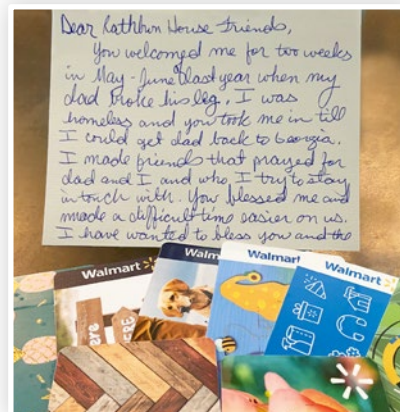 Dear Rathbun House Friends,
You welcomed me for two weeks
in May - June of last year when my
dad broke his leg. I was
homeless and you took me in till
I could get dad back to Georgia.
I made friends that prayed for
dad and I and who I try to stay
in touch with. You blessed me and
made a difficult time easier on us.
I have wanted to bless you and the
Walmart
Walm
Walmart
Walmart